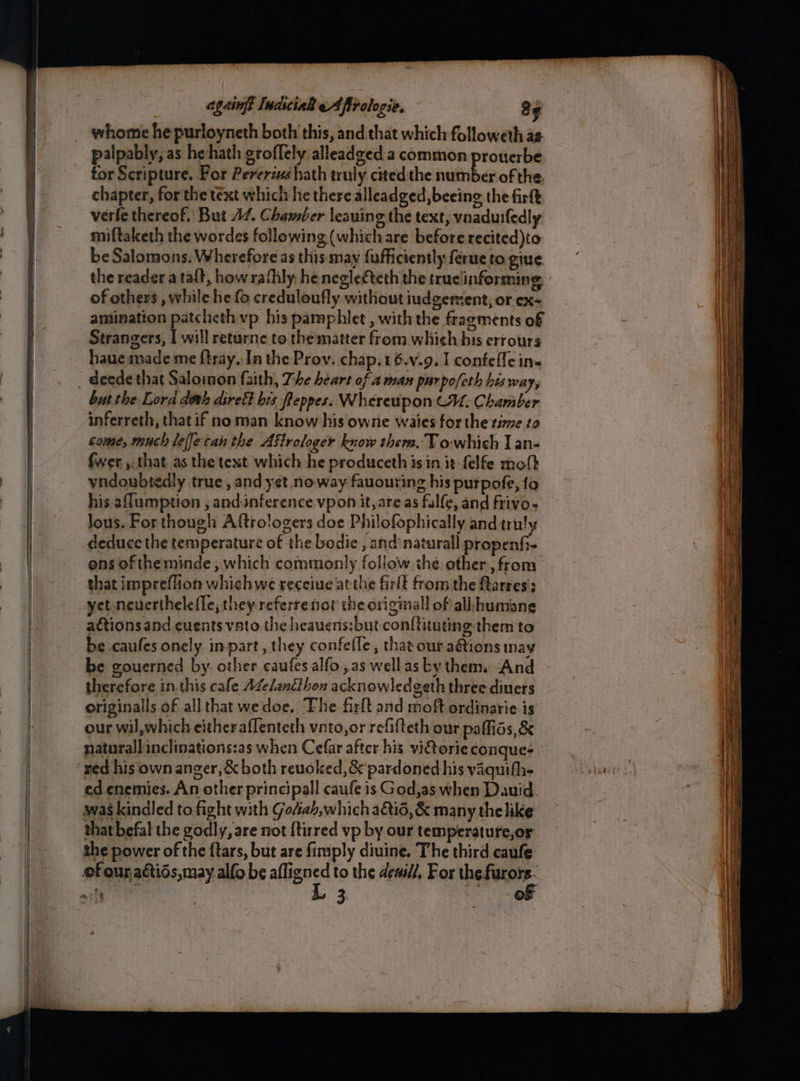 againſt Iudiciall Aſtrologie. 85
whome he purloyneth both this, and that which followeth as
palpably, as he hath groſſely alleadged a common prouerbe
for Scripture. For Pererius hath truly cited the number of the
chapter, for the text which he there alleadged, beeing the firſt
verſe thereof. But M. Chamber leauing the text, vnaduiſedly
miſtaketh the wordes following (which are before recited) to
be Salomons. Wherefore as this may ſufficiently ſerue to giue
the reader a taſt, how raſhly he neglecteth the true informing
of others, while he ſo creduloufly without iudgement, or ex-
amination patcheth vp his pamphlet, with the fragments of
Strangers, I will returne to the matter from which his errours
haue made me ſtray. In the Prov. chap. 16.v.9. I confeſſe in-
deede that Salomon ſaith, The heart of a man purpoſeth his way,
but the Lord doth direct his ſteppes. Whereupon M. Chamber
inferreth, that if no man know his owne waies for the time to
come, much leſſe can the Aſtrologer know them. To which I an-
ſwer, that as the text which he produceth is in it ſelfe moſt
vndoubtedly true, and yet no way fauouring his purpoſe, ſo
his aſſumption, and inference vpon it, are as falſe, and frivo-
lous. For though Aſtrologers doe Philoſophically and truly
deduce the temperature of the bodie, and naturall propenſi-
ons of the minde, which commonly follow the other, from
that impreſſion which we receiue at the firſt from the ſtarres;
yet neuertheleſſe, they referre not the originall of all humane
actions and euents vnto the heauens: but conſtituting them to
be cauſes onely in part, they confeſſe, that our actions may
be gouerned by other cauſes alſo, as well as by them. And
therefore in this caſe Melancthon acknowledgeth three diuers
originalls of all that we doe. The firſt and moſt ordinarie is
our wil, which either aſſenteth vnto, or reſiſteth our paſſiõs, &
naturall inclinations: as when Ceſar after his victorie conque-
red his own anger, & both reuoked, & pardoned his vãquiſh-
ed enemies. An other principall cauſe is God, as when Dauid
was kindled to fight with Goliah, which actiõ, & many the like
that befal the godly, are not ſtirred vp by our temperature, or
the power of the ſtars, but are ſimply diuine. The third cauſe
of our actiõs, may alſo be aſſigned to the deuill. For the furors
L 3 of